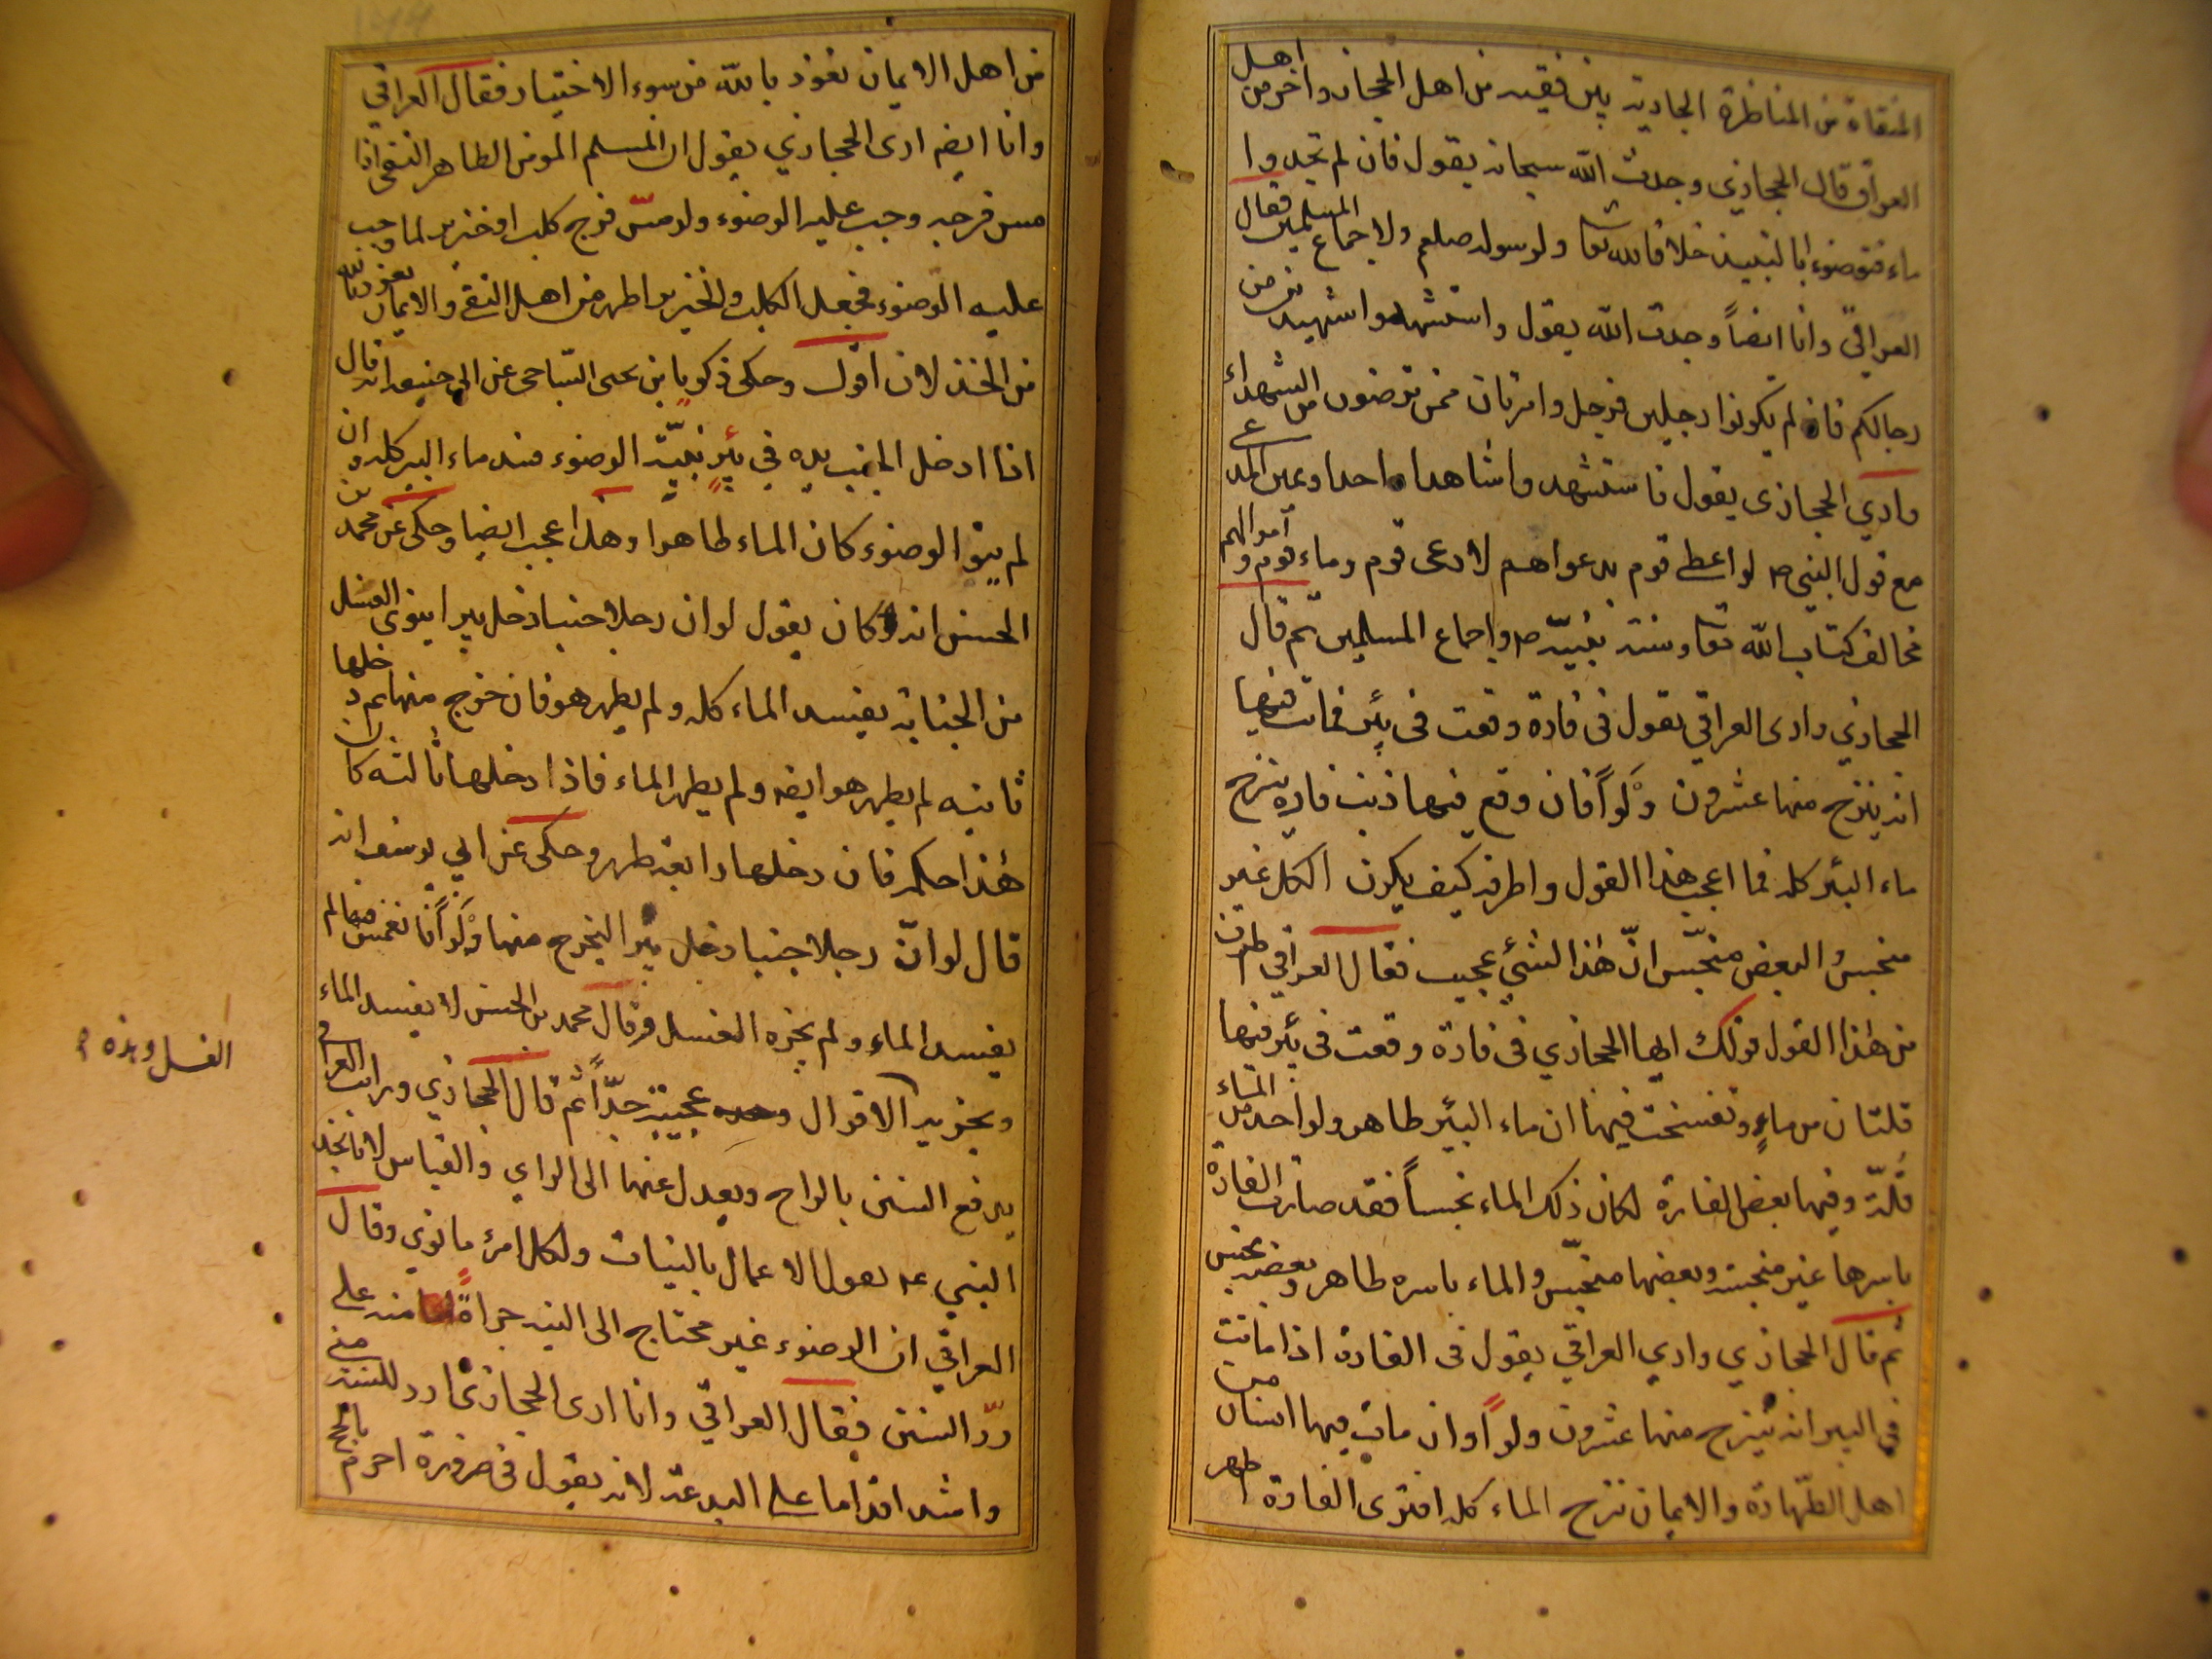 المنتقاة من المناظرة الجارية بين فقيه من اهل الحجاز واخر من اهل
العراق قال الحجازي وجدت الله سبحانه يقول فان لم تجدوا
ماء فتوضؤا بالنبيذ خلافا لله تعا ولرسوله صلعم ولاجماع المسلمين فقال
العراقي وانا ايضاً وجدت الله يقول واستشهدوا شهيدين من
رجالكم فان لم يكونوا رجلين فرجل وامرتان ممن ترضون من الشهداء
وارى الحجازى يقول فاستشهدوا شاهدا واحدا ويمين المدعى
مع قول النبي ص لو اعطى قوم بدعواهم لادعى قوم دماء قوم واموالهم
مخالف كتاب الله تعا وسنة نبيّه ص واجماع المسلمين ثم قال
الحجازي وارى العراقي يقول فى فارة وقعت فى بئر فماتت فيها
انه ينزح منها عشرون دَلْواً فان وقع فيها ذنب فارة ينزح
ماء البئر كله فما اعجب هذا القول واطرفه كيف يكون الكل غير
منجسٌ والبعض منجّس انّ هذا الشئ عجيب فقال العراقي اطرف
من هذا القول قولك ايها الحجازي فى فارة وقعت فى بئر فيها
قلتان من ماءٍ وتفسخت فيها ان ماء البئر طاهر ولو اخذ من الماء
قُلّة وفيها بعض الفارة لكان ذلك الماء نجساً فقد صارت الفارة
باسرها غير منجسة وبعضها منجّس والماء باسره طاهر وبعضه نجس
ثم قال الحجازي وارى العراقي يقول فى الفارة اذا ماتت
في البير انه ينزح منها عشرون دلواً وان مات فيها انسان من
اهل الطّهارة والايمان نزح الماء كله افترى الفارة اطهر
من اهل الايمان نعوذ بالله من سوء الاختيار فقال العراقي
وانا ايضا ارى الحجازي يقول ان المسلم المومن الطاهر التقى اذا
مس فرجه وجب عليه الوضوء ولو مسّ فرج كلب او خنزير لما وجب
عليه الوضوء فجعل الكلب والخنزير اطهر من اهل التقى والايمان نعوذ بالله
من الخذلان اقول وحكى زكريا بن يحيى الساجى عن ابي حنيفه انه قال
اذا ادخل الجنب يده في بئرٍ بنيّة الوضوء فسد ماء البير كله وان
لم ينو الوضوء كان الماء طاهرا وهذا عجب ايضا وحكى عن محمد بن
الحسن انه كان يقول لو ان رجلا جنبا دخل بيرا ينوى الغسل
من الجنابة يفسد الماء كله ولم يطهر هو فان خرج منها ثم دخلها
ثانيه لم يطهر هو ايضا ولم يطهر الماء فاذا دخلها ثالثه كان
هذا حكمه فان دخلها رابعة طهر وحكى عن ابي يوسف انه
قال لو انّ رجلا جنبا دخل بئرا ليخرج منها دَلْواً فانغمس فيها لم
يفسد الماء ولم يجزه الغسل وقال محمد بن الحسن لا يفسد الماء
ويجزيه الاقوال عجيبة جدّاً ثم قال الحجازي ورايت العراقي
الغسل وهذه
يدفع السنن بالراح ويعدل عنها الى الراي والقياس لانا نجد
النبي عم يقول الاعمال بالنيات ولكل امرء ما نوى وقال
العراقي ان الوضوء غير محتاج الى النية جراةً منه على
ردّ السنن فقال العراقي وانا ارى الحجازى ارد للسنة مني
واشد اقداما على البدعة لانه يقول فى صرورة احرم بالحج